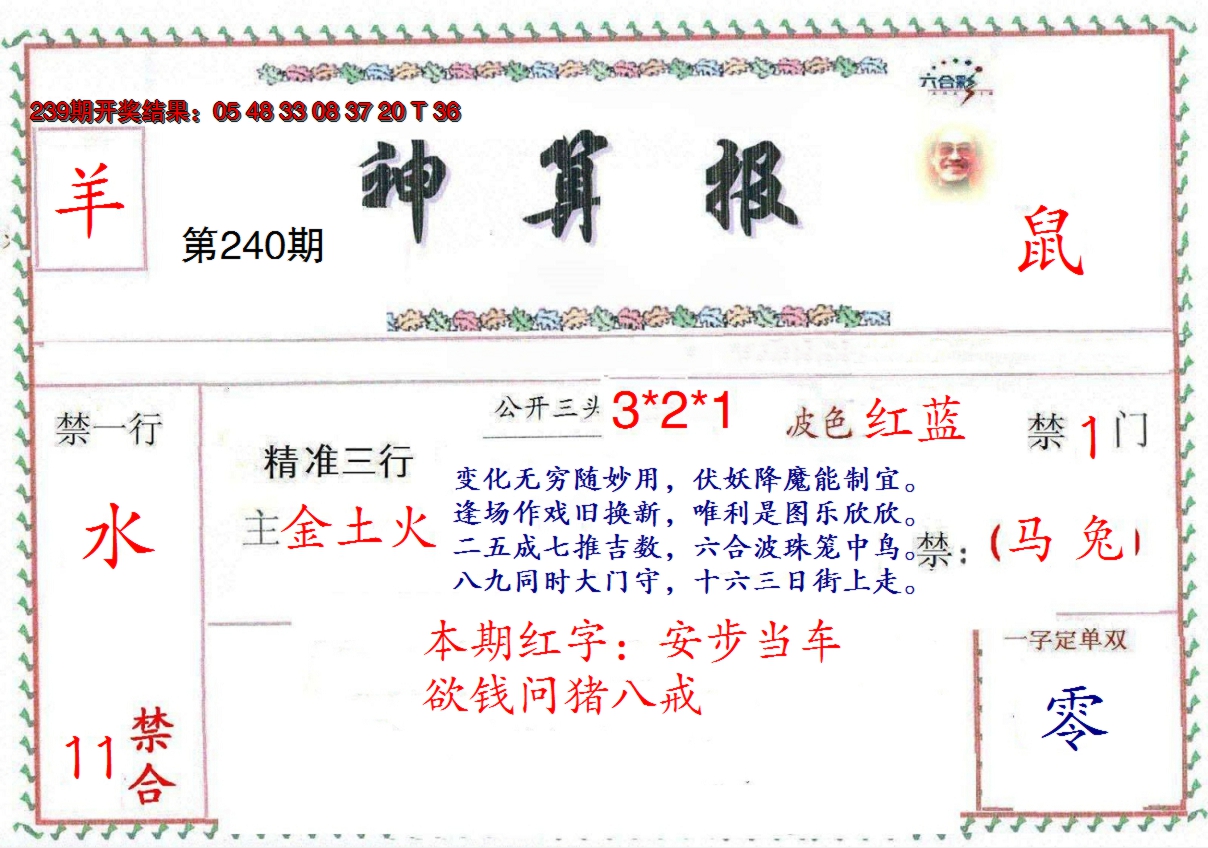 六合彩
239期开奖结果：05 48 33 08 37 20 T 36
羊
神算报
第240期
鼠
禁一行
水
11
禁合
精准三行
主金土火
公开三头 3*2*1
波色 红蓝
变化无穷随妙用，伏妖降魔能制宜。
逢场作戏旧换新，唯利是图乐欣欣。
二五成七推吉数，六合波珠笼中鸟。
八九同时大门守，十六三日街上走。
禁1门
禁：（马 兔）
本期红字：安步当车
欲钱问猪八戒
一字定单双
零